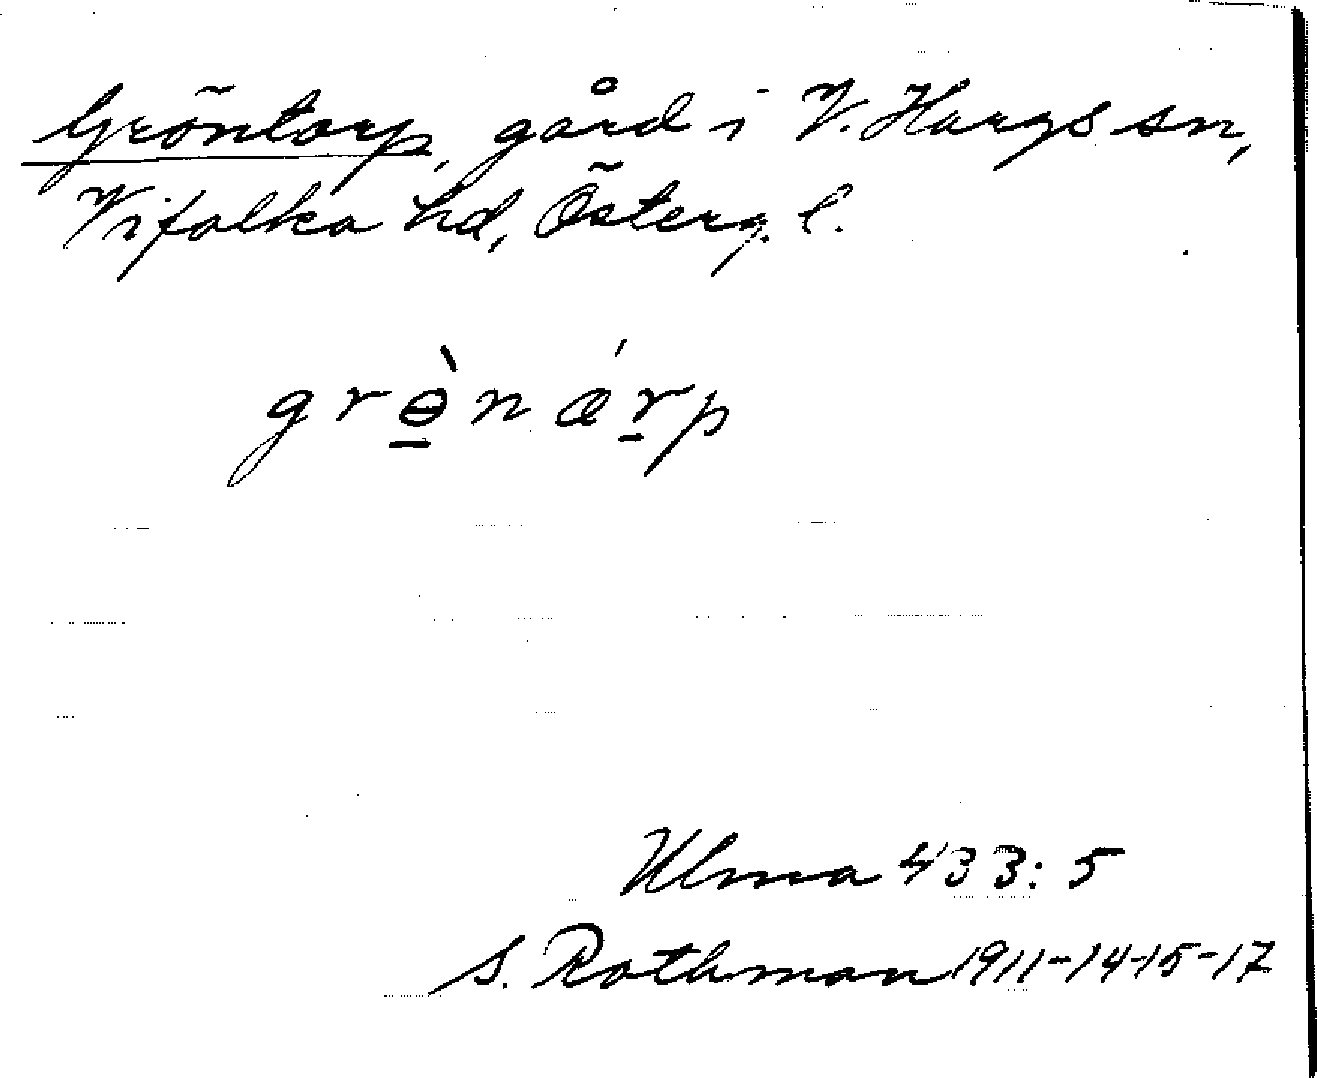 Gröntorp, gård i V. Hargs sn,
Vifolka hd, Österg. l.
grɵ̲̀nǽr̲p
Ulma 433: 5
S. Rothman 1911-14-15-17